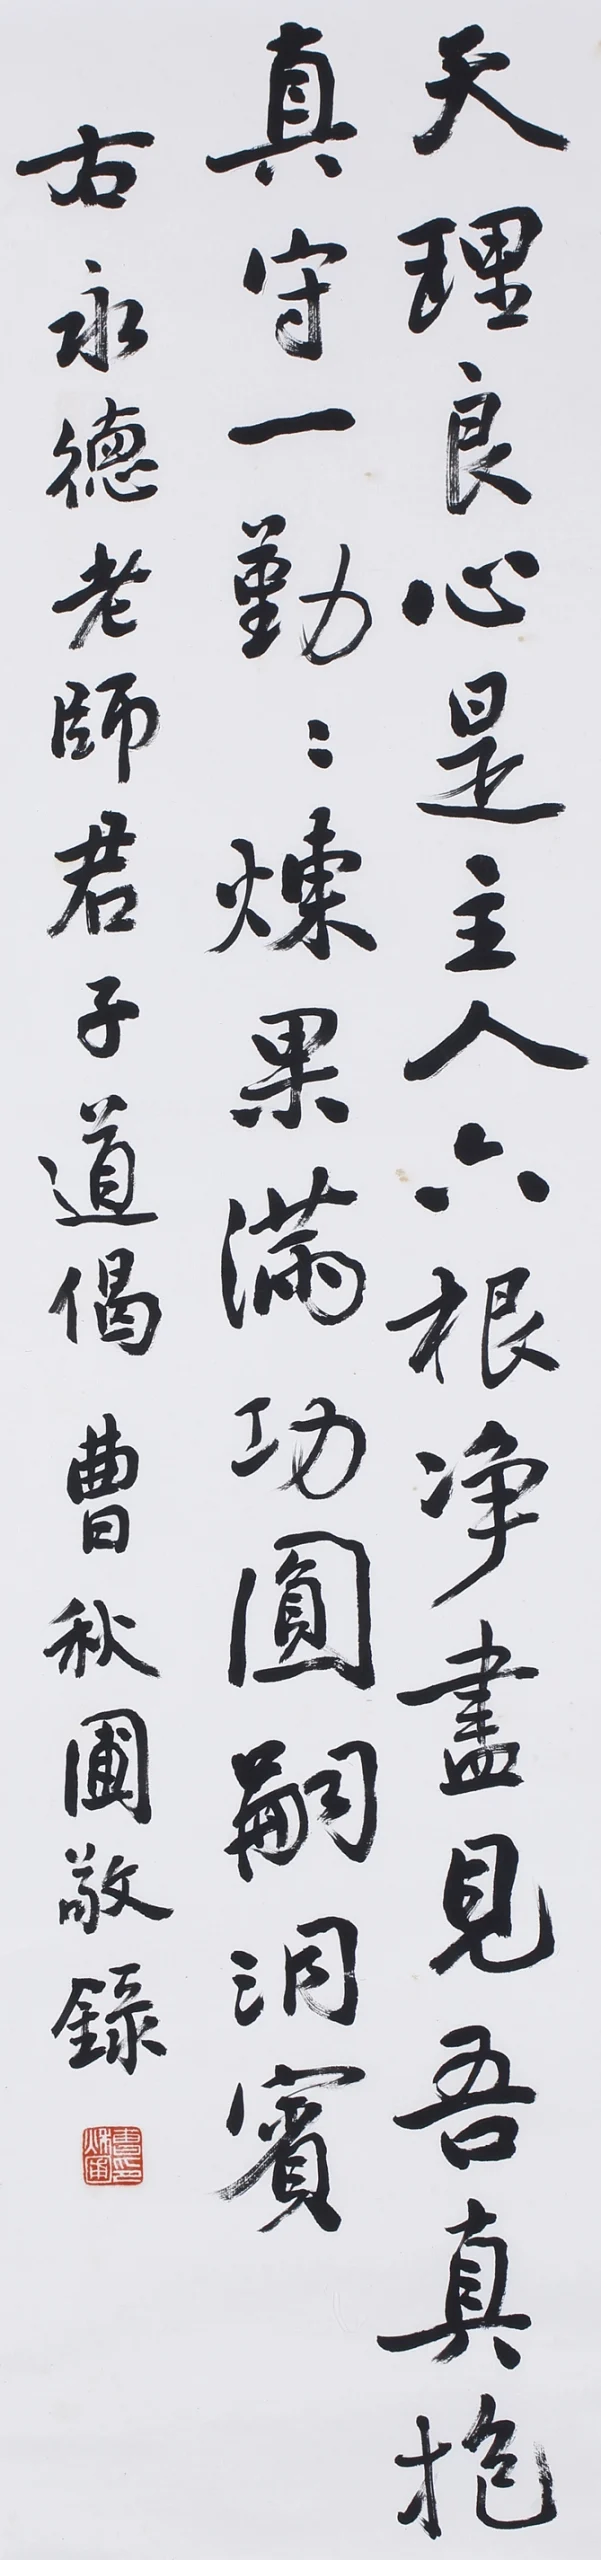 天理良心是主人六根净盡見吾真抱
真守一勤〻煉果滿功圓嗣洞賓
右永德老師君子道偈 曹秋圃敬錄
曹秋圃印